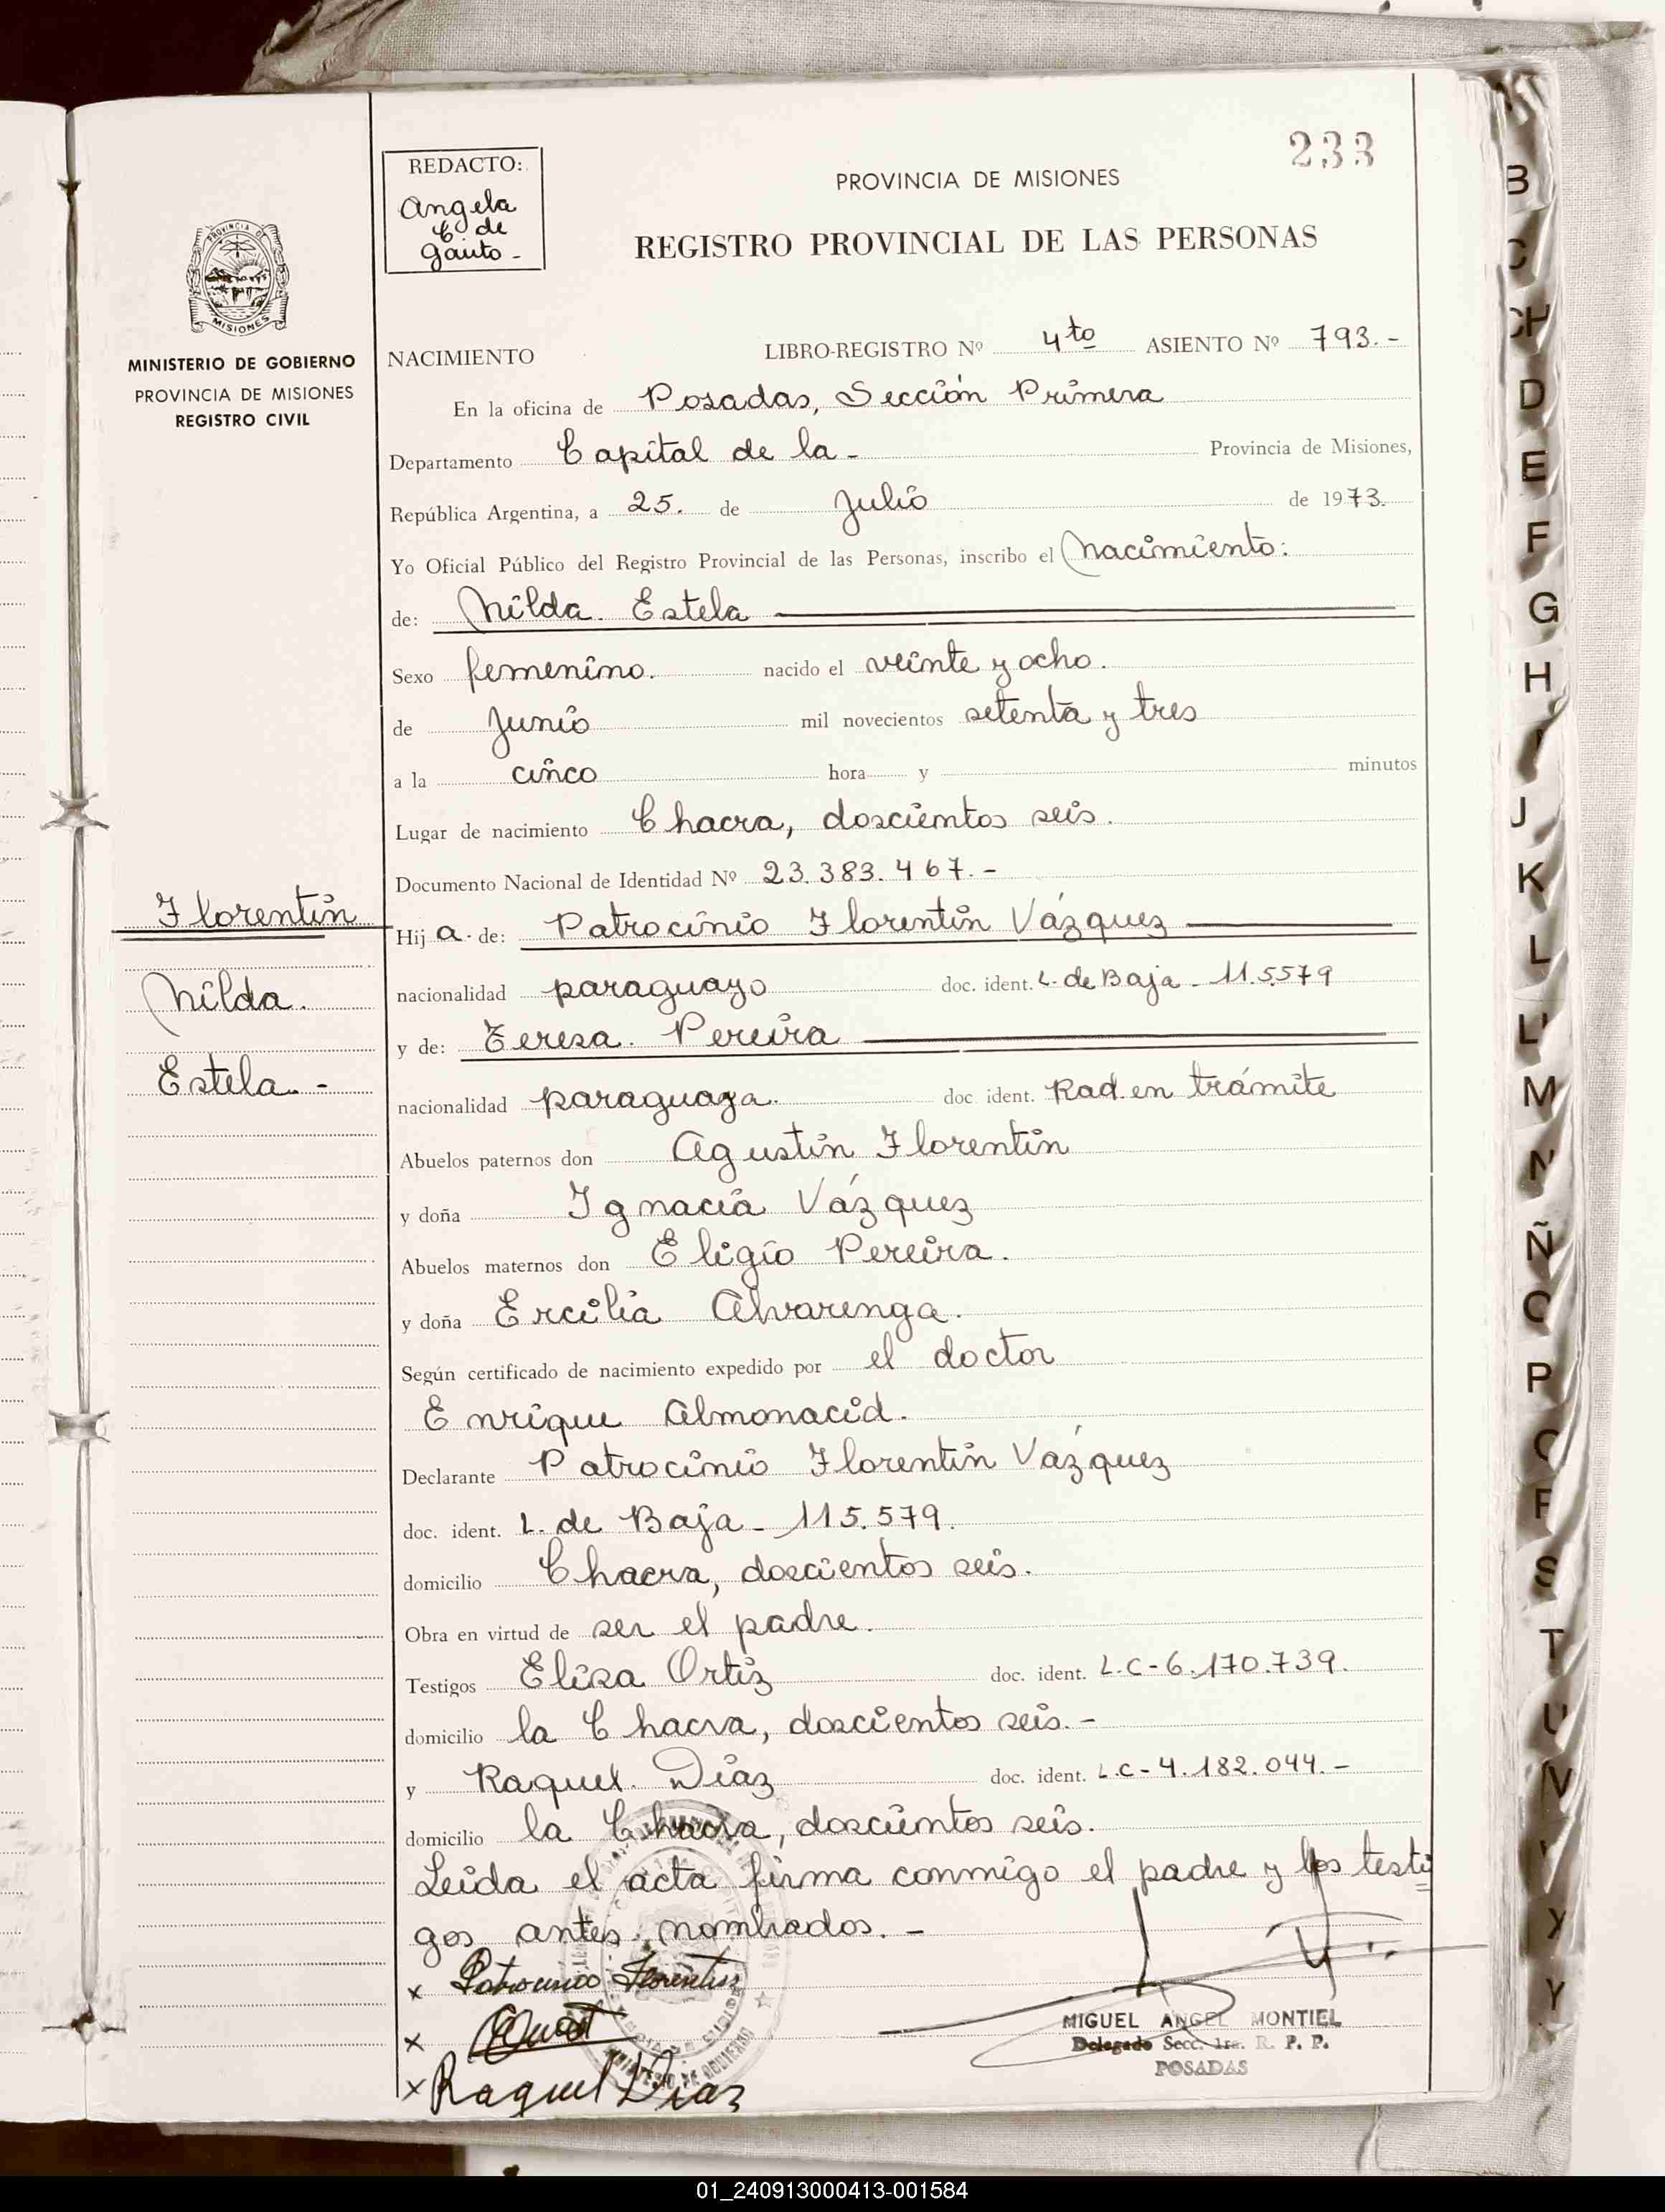 233
REDACTO:
Angela
C. de
Gauto -
PROVINCIA DE MISIONES
REGISTRO PROVINCIAL DE LAS PERSONAS
MISIONES
MINISTERIO DE GOBIERNO
PROVINCIA DE MISIONES
REGISTRO CIVIL
NACIMIENTO LIBRO-REGISTRO Nº 4to ASIENTO Nº 793.-
En la oficina de Posadas, Sección Primera
Departamento Capital de la - Provincia de Misiones,
República Argentina, a 25. de Julio de 1973.
Yo Oficial Público del Registro Provincial de las Personas, inscribo el Nacimiento:
de: Nilda. Estela
Sexo femenino. nacido el veinte y ocho.
de Junio mil novecientos setenta y tres
a la cinco hora y minutos
Lugar de nacimiento Chacra, doscientos seis.
Documento Nacional de Identidad Nº 23.383.467.-
Florentín
Nilda.
Estela.-
Hij a. de: Patrocinio Florentín Vázquez
nacionalidad paraguayo doc. ident. L. de Baja - 11.5579
y de: Teresa. Pereira
nacionalidad paraguaya. doc ident. Rad. en trámite
Abuelos paternos don Agustín Florentín
y doña Ignacia Vázquez
Abuelos maternos don Eligio Pereira.
y doña Ercilia Alvarenga.
Según certificado de nacimiento expedido por el doctor
Enrique Almonacid.
Declarante Patrocinio Florentín Vázquez
doc. ident. L. de Baja - 115.579.
domicilio Chacra, doscientos seis.
Obra en virtud de ser el padre.
Testigos Elisa Ortiz doc. ident. L.C-6.170.739.
domicilio la Chacra, doscientos seis.-
y Raquel. Díaz doc. ident. L.C-4.182.044.-
domicilio la Chacra, doscientos seis.
Leída el acta firma conmigo el padre y los testi
gos antes nombrados.-
x Patrocinio Florentin
x
x Raquel Diaz
MIGUEL ANGEL MONTIEL
Delegado Secc. 1ra. R. P. P.
POSADAS
B
C
CH
D
E
F
G
H
J
K
L
LL
M
N
Ñ
O
P
Q
R
S
T
U
V
X
Y
01_240913000413-001584